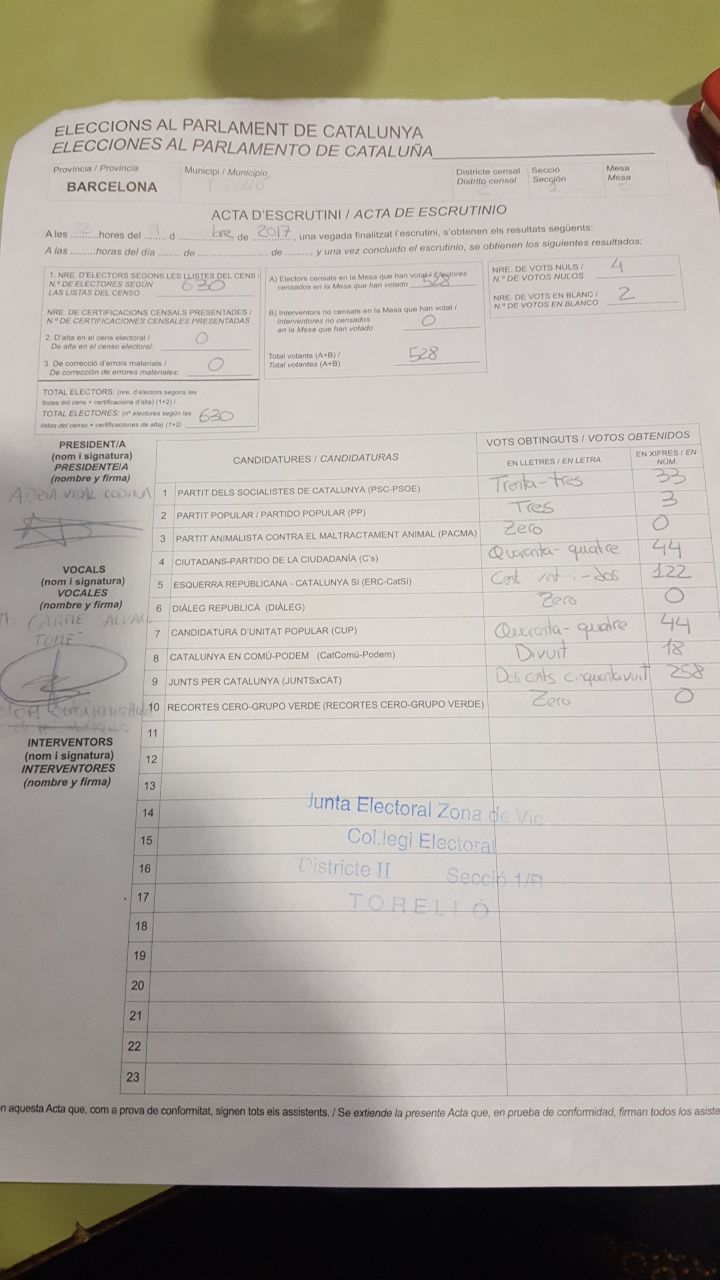 ELECCIONS AL PARLAMENT DE CATALUNYA
ELECCIONES AL PARLAMENTO DE CATALUÑA
Provincia / Provincia
BARCELONA
Municipi / Municipio
Districte censal
Distrito censal
Secció
Sección
2
Mesa
Mesa
ACTA D'ESCRUTINI / ACTA DE ESCRUTINIO
A les ......... hores del ....... d ......... bre de 2017, una vegada finalitzat l'escrutini, s'obtenen els resultats següents:
A las ......... horas del día ...... de ...................... de ........, y una vez concluido el escrutinio, se obtienen los siguientes resultados:
1. NRE. D'ELECTORS SEGONS LES LLISTES DEL CENS /
N.º DE ELECTORES SEGÚN
LAS LISTAS DEL CENSO 630
NRE. DE CERTIFICACIONS CENSALS PRESENTADES /
N.º DE CERTIFICACIONES CENSALES PRESENTADAS
2. D'alta en el cens electoral /
De alta en el censo electoral: 0
3. De correcció d'errors materials /
De corrección de errores materiales: 0
TOTAL ELECTORS: (nre. d'electors segons les
llistes del cens + certificacions d'alta) (1+2) /
TOTAL ELECTORES: (nº electores según las
listas del censo + certificaciones de alta) (1+2) 630
A) Electors censats en la Mesa que han votat / Electores
censados en la Mesa que han votado 528
B) Interventors no censats en la Mesa que han votat /
Interventores no censados
en la Mesa que han votado 0
Total votants (A+B) /
Total votantes (A+B) 528
NRE. DE VOTS NULS /
N.º DE VOTOS NULOS 4
NRE. DE VOTS EN BLANC /
N.º DE VOTOS EN BLANCO 2
PRESIDENT/A
(nom i signatura)
PRESIDENTE/A
(nombre y firma)
ADRIA VIDAL CODINA
VOCALS
(nom i signatura)
VOCALES
(nombre y firma)
CARME
INTERVENTORS
(nom i signatura)
INTERVENTORES
(nombre y firma)
CANDIDATURES / CANDIDATURAS
VOTS OBTINGUTS / VOTOS OBTENIDOS
EN LLETRES / EN LETRA
EN XIFRES / EN NÚM.
1 PARTIT DELS SOCIALISTES DE CATALUNYA (PSC-PSOE) Trenta-tres 33
2 PARTIT POPULAR / PARTIDO POPULAR (PP) Tres 3
3 PARTIT ANIMALISTA CONTRA EL MALTRACTAMENT ANIMAL (PACMA) Zero 0
4 CIUTADANS-PARTIDO DE LA CIUDADANÍA (C's) Quaranta-quatre 44
5 ESQUERRA REPUBLICANA - CATALUNYA SI (ERC-CatSí) Cent vint-i-dos 122
6 DIÀLEG REPUBLICÀ (DIÀLEG) Zero 0
7 CANDIDATURA D'UNITAT POPULAR (CUP) Quaranta-quatre 44
8 CATALUNYA EN COMÚ-PODEM (CatComú-Podem) Divuit 18
9 JUNTS PER CATALUNYA (JUNTSxCAT) Dos cents cinquantavuit 258
10 RECORTES CERO-GRUPO VERDE (RECORTES CERO-GRUPO VERDE) Zero 0
11
12
13
14
15
16
17
18
19
20
21
22
23
Junta Electoral Zona de Vic
Col.legi Electoral
Districte II Secció 1/B
TORELLÓ
n aquesta Acta que, com a prova de conformitat, signen tots els assistents. / Se extiende la presente Acta que, en prueba de conformidad, firman todos los asiste